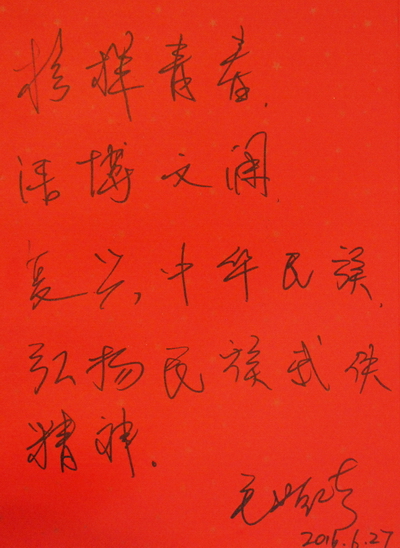 挥青春,
博文澜.
复兴,中华民族,
弘扬民族武侠
精神.
毛
2016.6.27